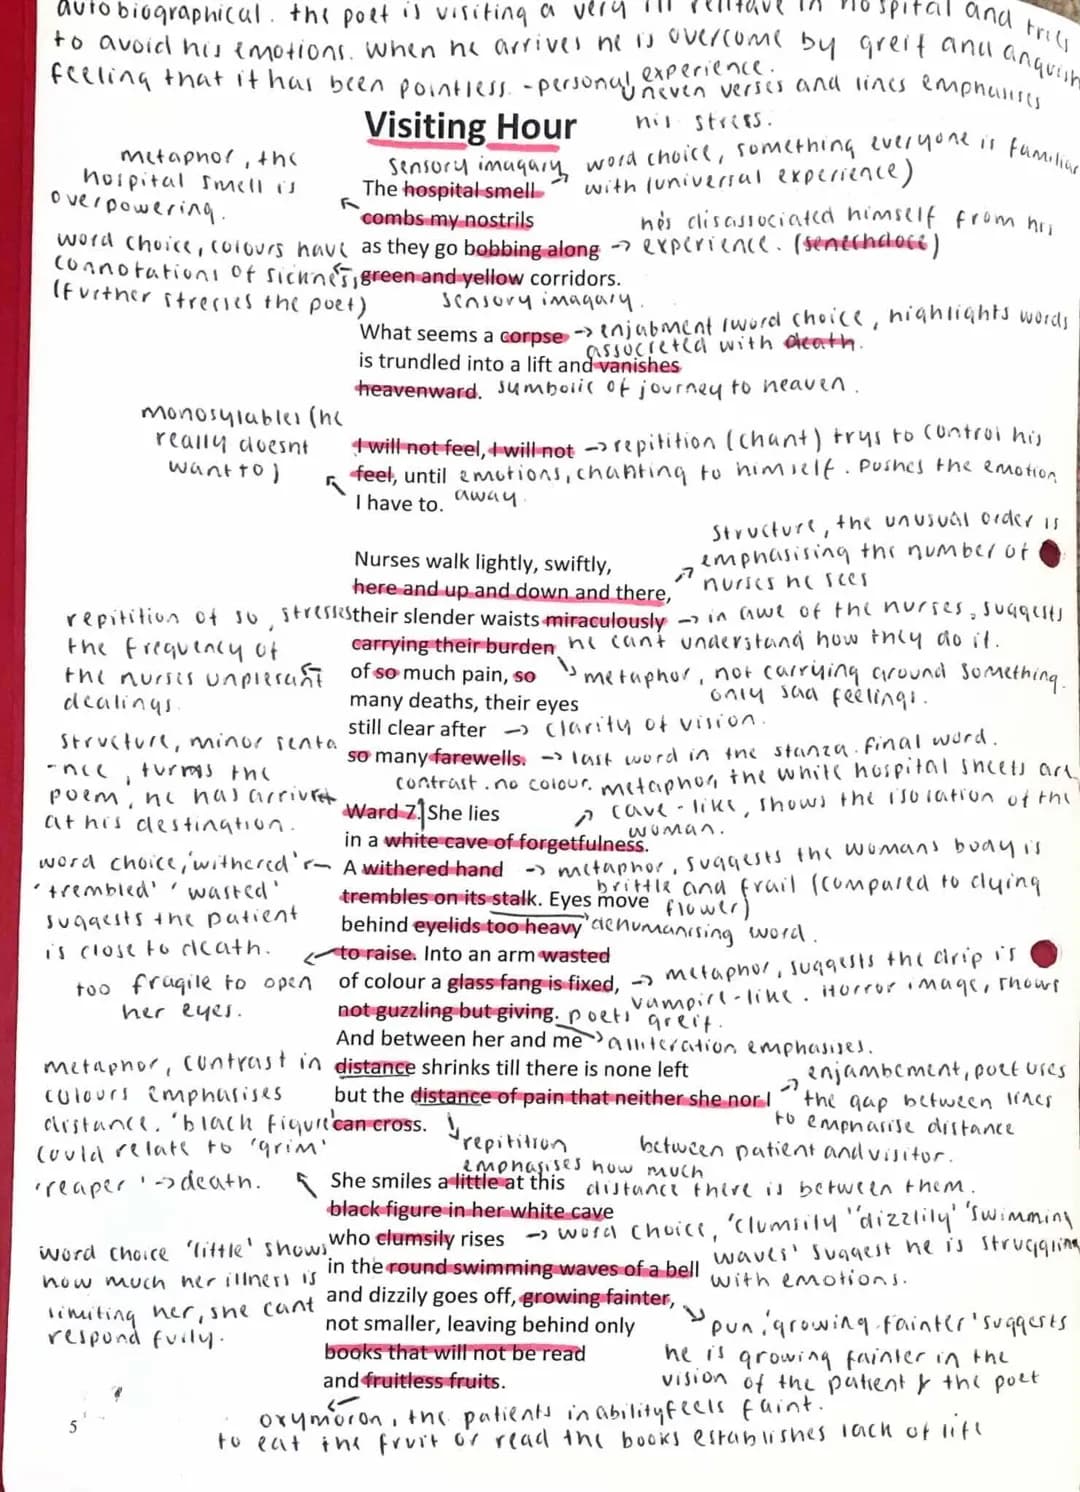 autobiographical. the poet is visiting a very ill relitave in hospital and tries
to avoid his emotions. when he arrives he is overcome by greif and anguish
feeling that it has been pointless. - personal experience.
uneven verses and lines emphasises
his stress.
Visiting Hour
metaphor, the
hospital smell is
overpowering.
sensory imagary
word choice, something everyone is familiar
with (universal experience)
The hospital smell
combs my nostrils
as they go bobbing along
green and yellow corridors.
he's disassociated himself from his
→ experience. (senechdoce)
word choice, colours have
connotations of sickness
(further stresses the poet)
sensory imagary.
What seems a corpse
is trundled into a lift and vanishes
heavenward.
→ enjabment /word choice, highlights words
assocreted with death.
sumbolic of journey to heaven.
monosylables (he
really doesnt
want to)
I will not feel, I will not
feel, until
I have to.
→ repitition (chant) trys to control his
emotions, chanting to himself. Pushes the emotion
away.
Structure, the unusual order is
emphasising the number of
nurses he sees
Nurses walk lightly, swiftly,
here and up and down and there,
their slender waists miraculously
carrying their burden
of so much pain, so
many deaths, their eyes
still clear after
so many farewells.
repitition of so, stresses
the frequency of
the nurses unplesant
dealings.
→ in awe of the nurses, suggests
he cant understand how they do it.
metaphor, not carrying around something.
only sad feelings.
→ clarity of vision.
→ last word in the stanza. final word.
structure, minor senta
-nce, turns the
poem, he has arrived
at his destination.
contrast. no colour. metaphor, the white hospital sheets are
cave-like, shows the isolation of the
woman.
Ward 7. She lies
in a white cave of forgetfulness.
A withered hand
trembles on its stalk. Eyes move
behind eyelids too heavy
to raise. Into an arm wasted
of colour a glass fang is fixed,
not guzzling but giving.
And between her and me
distance shrinks till there is none left
but the distance of pain that neither she nor I
can cross.
word choice, 'withered'
'trembled' 'wasted'
suggests the patient
is close to death.
→ metaphor, suggests the womans body is
brittle and frail (compared to dying
flower)
dehumanising word.
too fragile to open
her eyes.
→ metaphor, suggests the drip is
vampire-like. Horror image, shows
poets greif.
alliteration emphasises.
metaphor, contrast in
colours emphasises
distance. 'black figure'
could relate to 'grim'
'reaper' → death.
enjambement, poet uses
the gap between lines
to emphasise distance
between patient and visitor.
repitition
emphasises how much
distance there is between them.
She smiles a little at this
black figure in her white cave
who clumsily rises
in the round swimming waves of a bell
and dizzily goes off, growing fainter,
not smaller, leaving behind only
books that will not be read
and fruitless fruits.
→ word choice, 'clumsily' 'dizzlily' 'swimming
waves' suggest he is struggling
with emotions.
word choice 'little' shows
how much her illness is
limiting her, she cant
respond fully.
pun, 'growing fainter' suggests
he is growing fainter in the
vision of the patient & the poet
feels faint.
oxymoron, the patients inability
to eat the fruit or read the books establishes lack of life
5